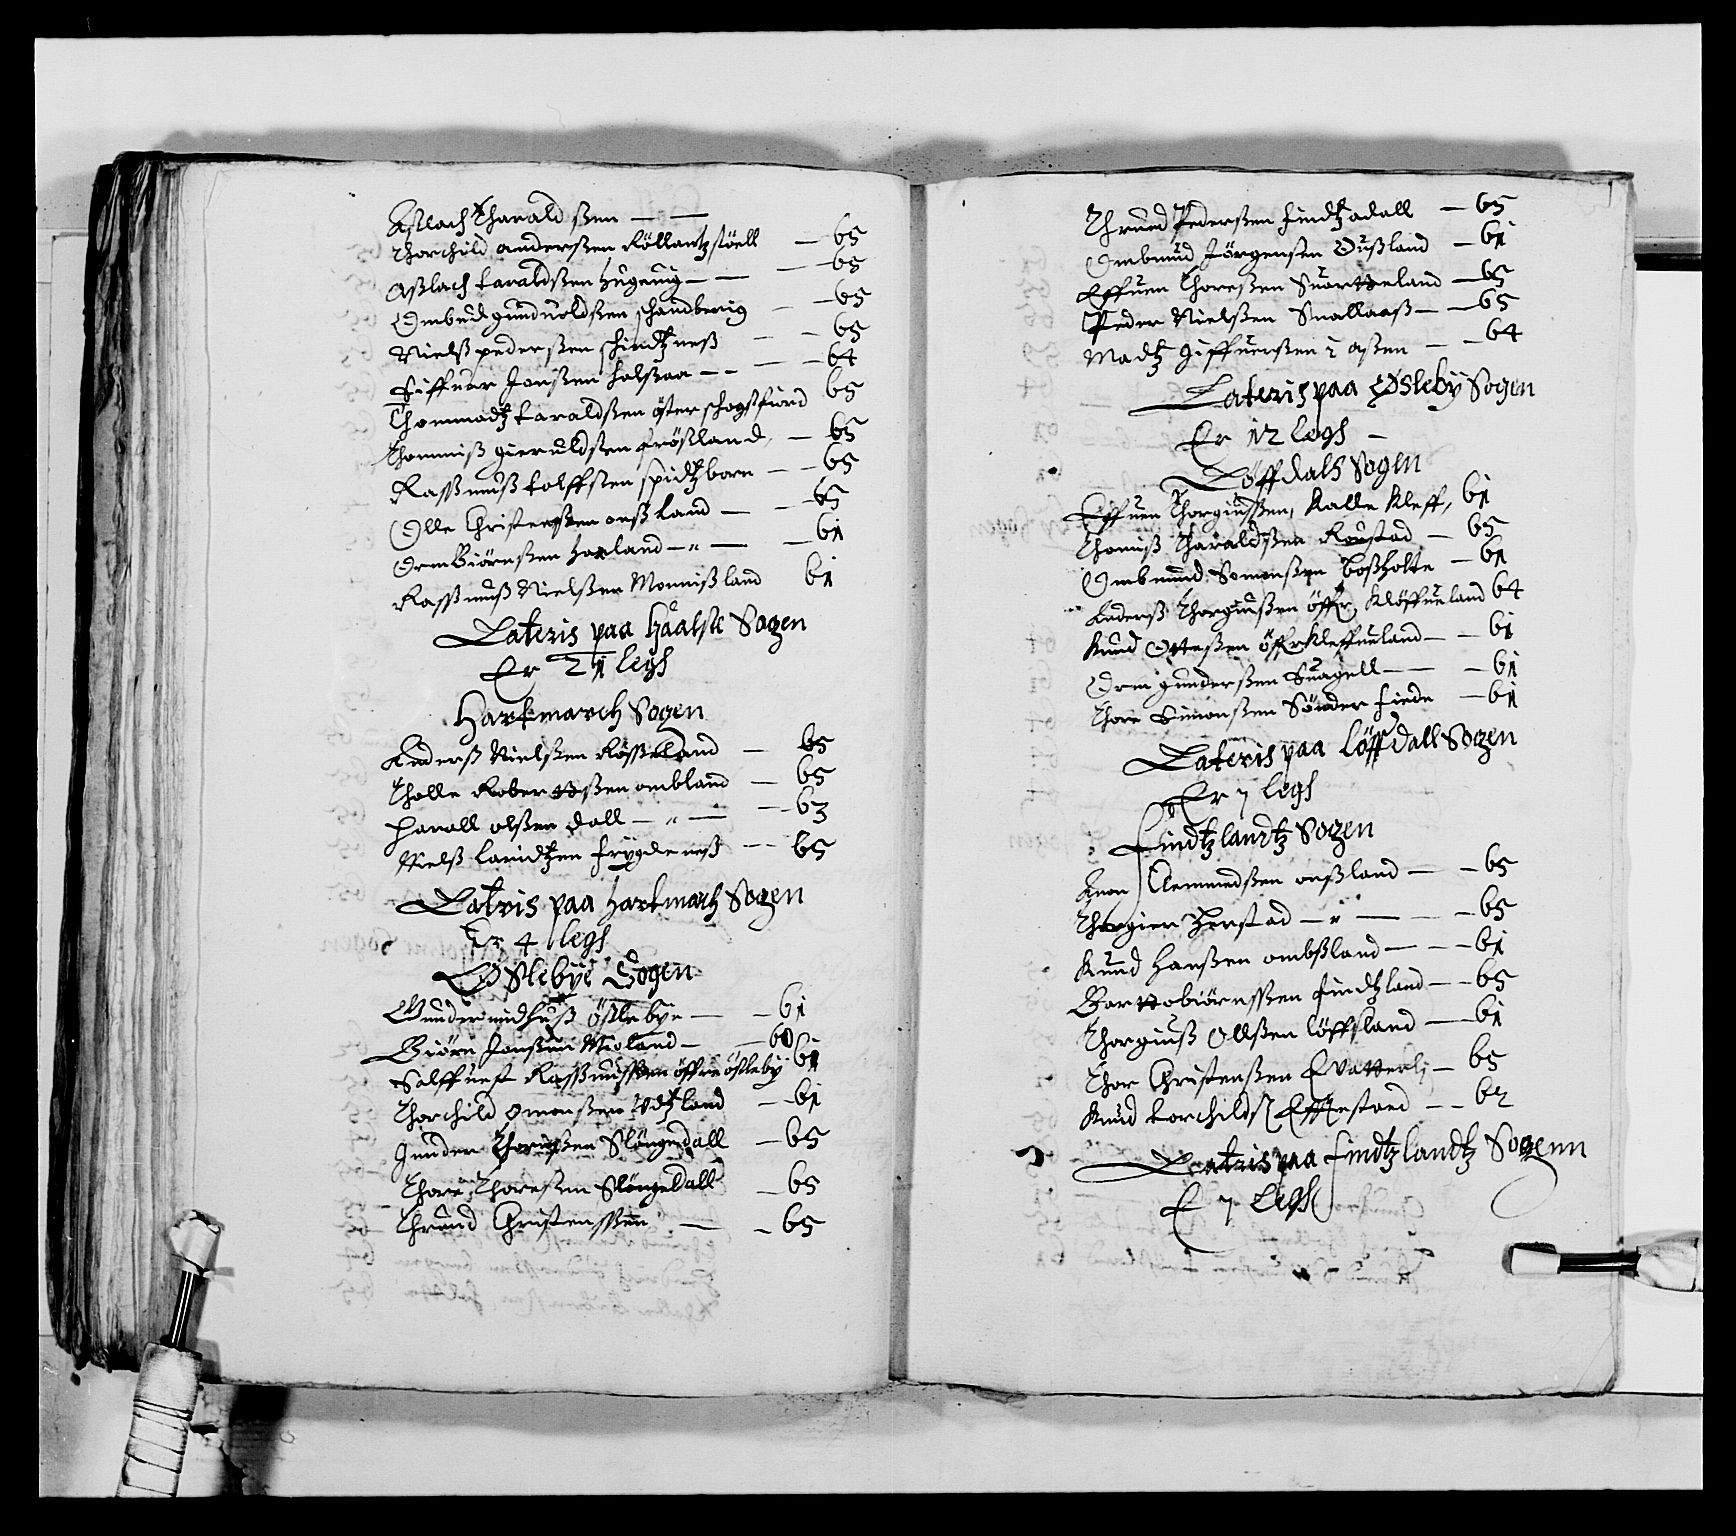 Aslach Tharaldßen — —
Thorchild Anderßen Röllantzstöell — 65
Aßlach taraldßen hugeuig — — 65
Ombud gunduoldßen schandberig — 65
Nielß pederßen schindtzneß — 65
Siffuer Jonßen halßaa — — 64
Thommadtz taraldßen öster schogsfiord 65
Thommiß gieruldsen frößland — 65
Raßmuß tolffsen spidtzbarn — — 65
Olle Christenßen onßland — — 65
Orm Biörnßen harland — " — 61
Raßmuß Nielßen Monnißland 61
Lateris paa haalse Sogen
Er 21 legh
Harkmarch Sogen
Anderß Nielßen Rößelland — 65
Tholle Robertßen ombland — 65
Harall olßen dall — " — 63
Nielß lauridtzen frygdeneß — 65
Latris paa harkmarch Sogen
Er 4 legh
Øslebye Sogen
Gunder midhuß östebye — 61
Biörn Jonßen Mioland — 60
Salffuest Raßmußen öffre östeby 61
Thorchild Omonßen Udtzland — 61
Gunder Thorißen Slöngedall — 65
Thore Thoreßen Slöngedall — 65
Thrund Christenßen — 65
Thrund Pederßen findtzadall — 65
Ombund Jörgensen Oußland — 61
Effuen Thoreßen Suartteland — 65
Peder Nielßen Snallaaß — 65
Madtz Giffuerßen i aßen — — 64
Lateris paa Øsleby Sogen
Er 12 legh —
Löffdals Sogen
Effuen Thorgiußen, Kalle Kleff, 61
Thomiß Tharaldßen Roustad — 65
Ombund Somonßen boßholte — 61
Anderß Thorgiußen öffre Klöffueland 64
Knud Otteßen öffre Kleffueland — 61
Orm gunderßen Suagell — — 61
Thore Simonßen Sönder fiede — 61
Lateris paa löffdall Sogen
Er 7 legh
Findtzlandtz Sogen
Anon Clemmedßen onßland — — 65
Thorgier Herstad — " — 65
Knud Hanßen ombßland — — 61
Gartt obiörnßen findtzland — 65
Thorgiuß Olßen löffland — 61
Thor Christenßen Euatteli — 65
Knud torchildß Effestad — — 62
Latris paa findtzlandtz Sogenn
E 7 Legh